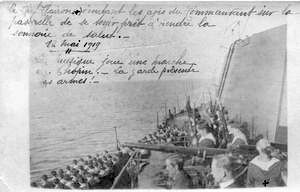 suivant les avis du Commandant sur la
passerelle de se tenir prêt à rendre la
sonnerie de salut. -
24 mai 1919
musique joue une marche
Chopin! - La garde présente
armes! -